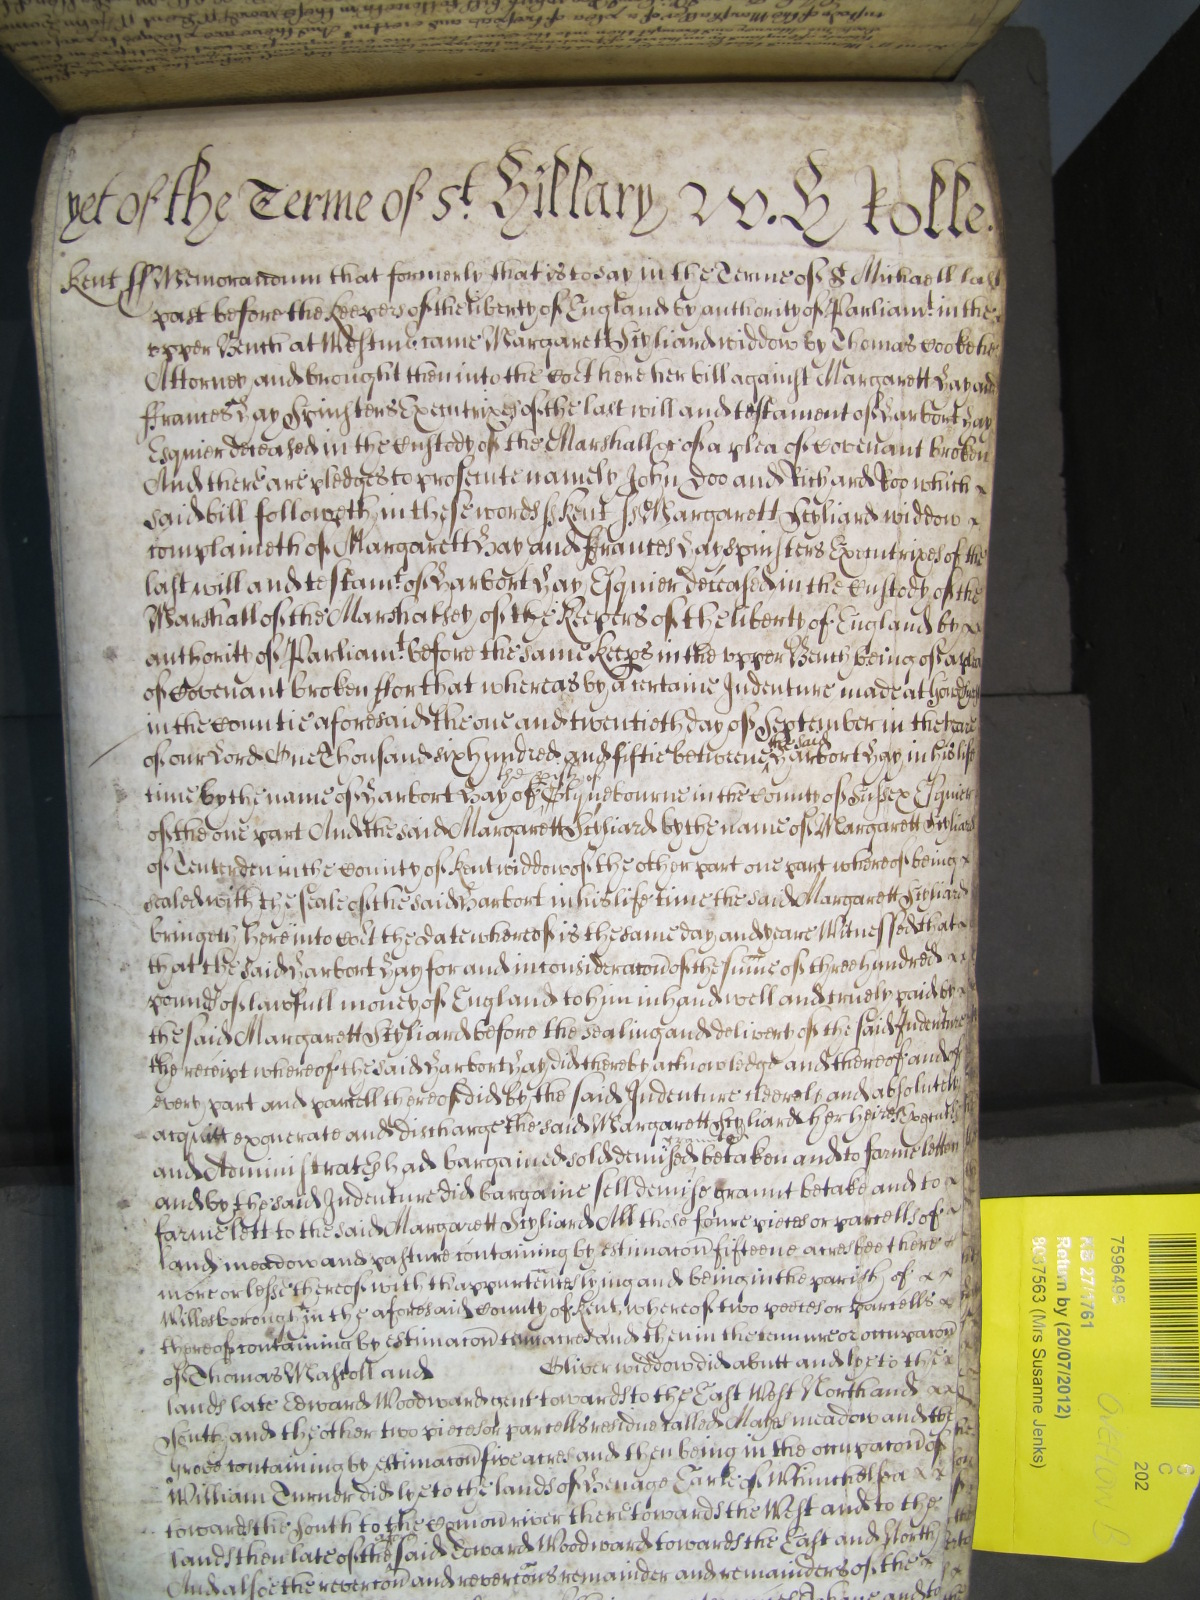 yet of the Terme of St. Hillary W. H Rolle.
Kent ss Memorandum that formerly that is to say in the Terme of St Michaell last
past before the Keepers of the liberty of England by authority of Parliamt. in the
upper Bench at Westmr. came Margarett Styliard widdow by Thomas Cooke her
Attorney and brought then into the Cort here her bill against Margarett Hay and
Frances Hay Spinsters Executrixes of the last will and testament of Harbort Hay
Esquier deceased in the custody of the Marshall &c of a plea of Covenant broken
And there are pledges to prosecute namely John Doo and Richard Roo which
said bill followeth in these words ss Kent ss Margarett Styliard widdow
complaineth of Margarett Hay and Frances Hay spinsters Executrixes of the
last will and testamt. of Harbort Hay Esquier deceased in the custody of the
Marshall of the Marshalsey of the Keepers of the liberty of England by
authority of Parliamt. before the same Keeps in the upper Bench being of a plea
of Covenant broken ffor that whereas by a certaine Indenture made at
in the Countie aforesaid the one and twentieth day of September in the yeare
of our Lord One Thousand six hundred and fiftie betweene the said Harbort Hay in his life
time by the name of Harbort Hay of Glyndbourne in the County of Sussex Esquier
of the one part And the said Margarett Styliard by the name of Margarett Styliard
of Tenterden in the County of Kent widdow of the other part one part whereof being
sealed with the seale of the said Harbort in his life time the said Margarett Styliard
bringeth here into Cort the date whereof is the same day and yeare Witnessed that
that the said Harbort Hay for and in consideracon of the sume of three hundred
pounds of lawfull money of England to him in hand well and truely paid by
the said Margarett Styliard before the sealing and delivery of the said Indenture
the receipt whereof the said Harbort Hay did thereby acknowledge and thereof and of
every part and parcell thereof did by the said Indenture cleerely and absolutely
acquitt exonerate and discharge the said Margarett Styliard her heires
and Administrators had bargained sold demised granted betaken and to farme letten
and by the said Indenture did bargaine sell demise graunt betake and to
farme lett to the said Margarett Styliard All those foure pieces or parcells of
land meadow and pasture containing by estimacon fifteene acres bee there
more or lesse thereof with thappurtences lying and being in the parish of
Willesborough in the aforesaid County of Kent, whereof two peeces or parcells
thereof containing by estimacon tenn acres and then in the tennure or occupacon
of Thomas Mascoll and Oliver widdow did abutt and lye to the
lands late Edward Woodward gent towards to the East West North and
South, and the other two pieces or parcells residue called Mayes meadow and the
Grove containing by estimacon five acres and then being in the occupacon of
William Turner did lye to the lands of Benage of Winnchelsea
towards the South to the Comon river there towards the West and to the
lands then late of the said Edward Woodward towards the East and North
And alsoe the revercon and revercons remainder and remainders of the
7596495
KB 27/1761
Return by (20/07/2012)
8037563 (Mrs Susanne Jenks)
202